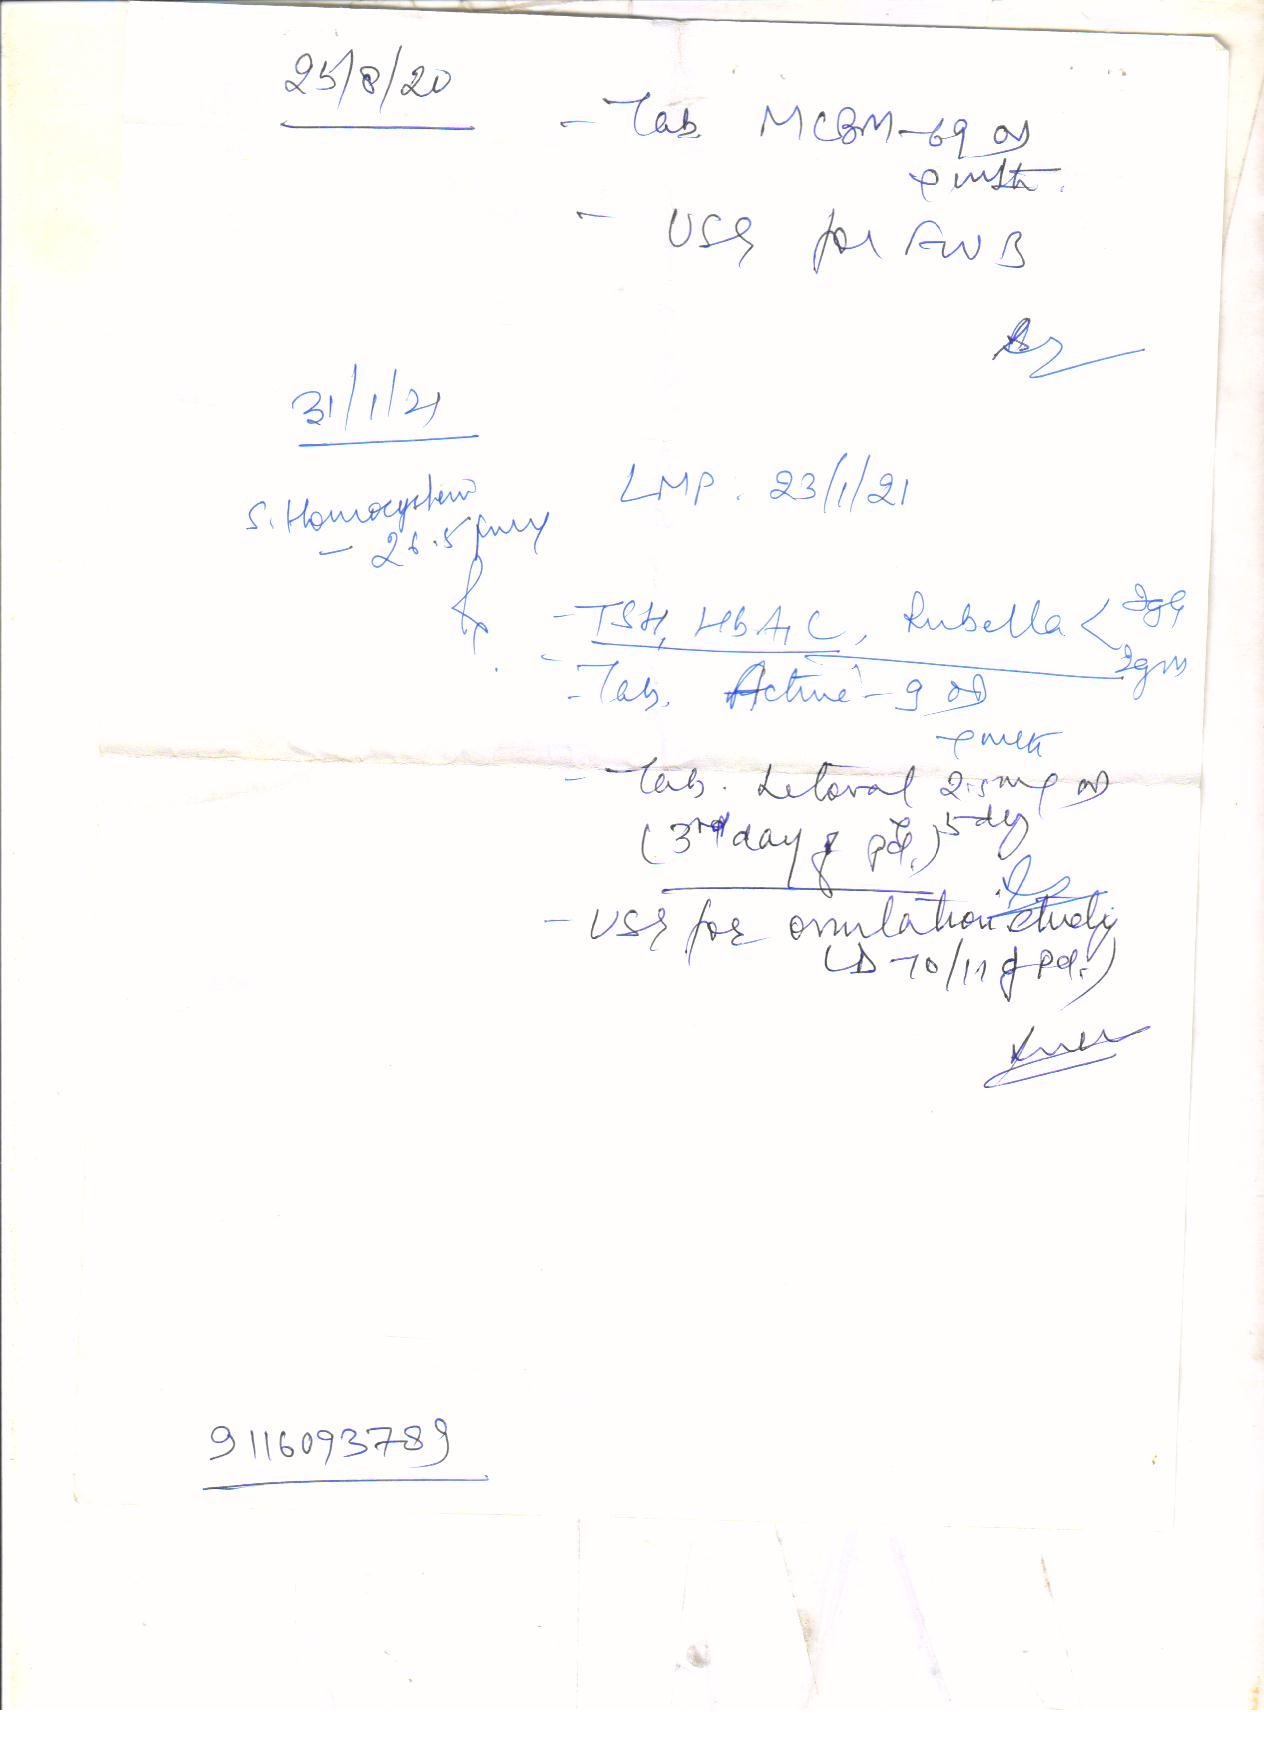 25/8/20
- Tab MCBM-69 OD
USG for FWB
31/1/21
LMP. 23/1/21
S. Homocystein
- 26.5
Rx
- TSH, HbA1C, Rubella < IgG
IgM
- Tab. Active-9 OD
- Tab. Letoval 2.5mg OD
(3rd day of pd.) 5 day
- USG for ovulation study
(D-10/11 of pd.)
9116093789